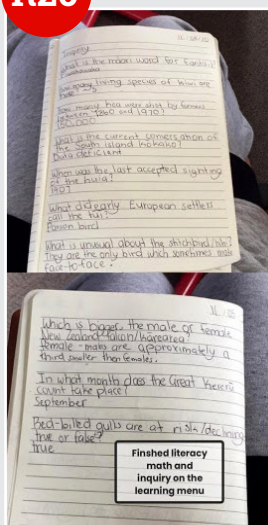 Inquiry
What is the maori word for
How many living species of kiwi are
How many kea were shot by farmers
between 1860 and 1970?
150,000
What is the current conversation of
the South island kokako?
Data deficient
When was the last accepted sighting
of the huia?
1907
What did early European settlers
call the tui?
Parson bird
What is unusual about the stichbird/hihi?
They are the only bird which sometimes mate
face-to-face.
Which is bigger, the male or female
New Zealand falcon/karearea?
female - males are approximately a
third smaller than females.
In what month does the Great Kereru
count take place?
September
Red-billed gulls are at risk/declining
true or false?
true
Finshed literacy
math and
inquiry on the
learning menu